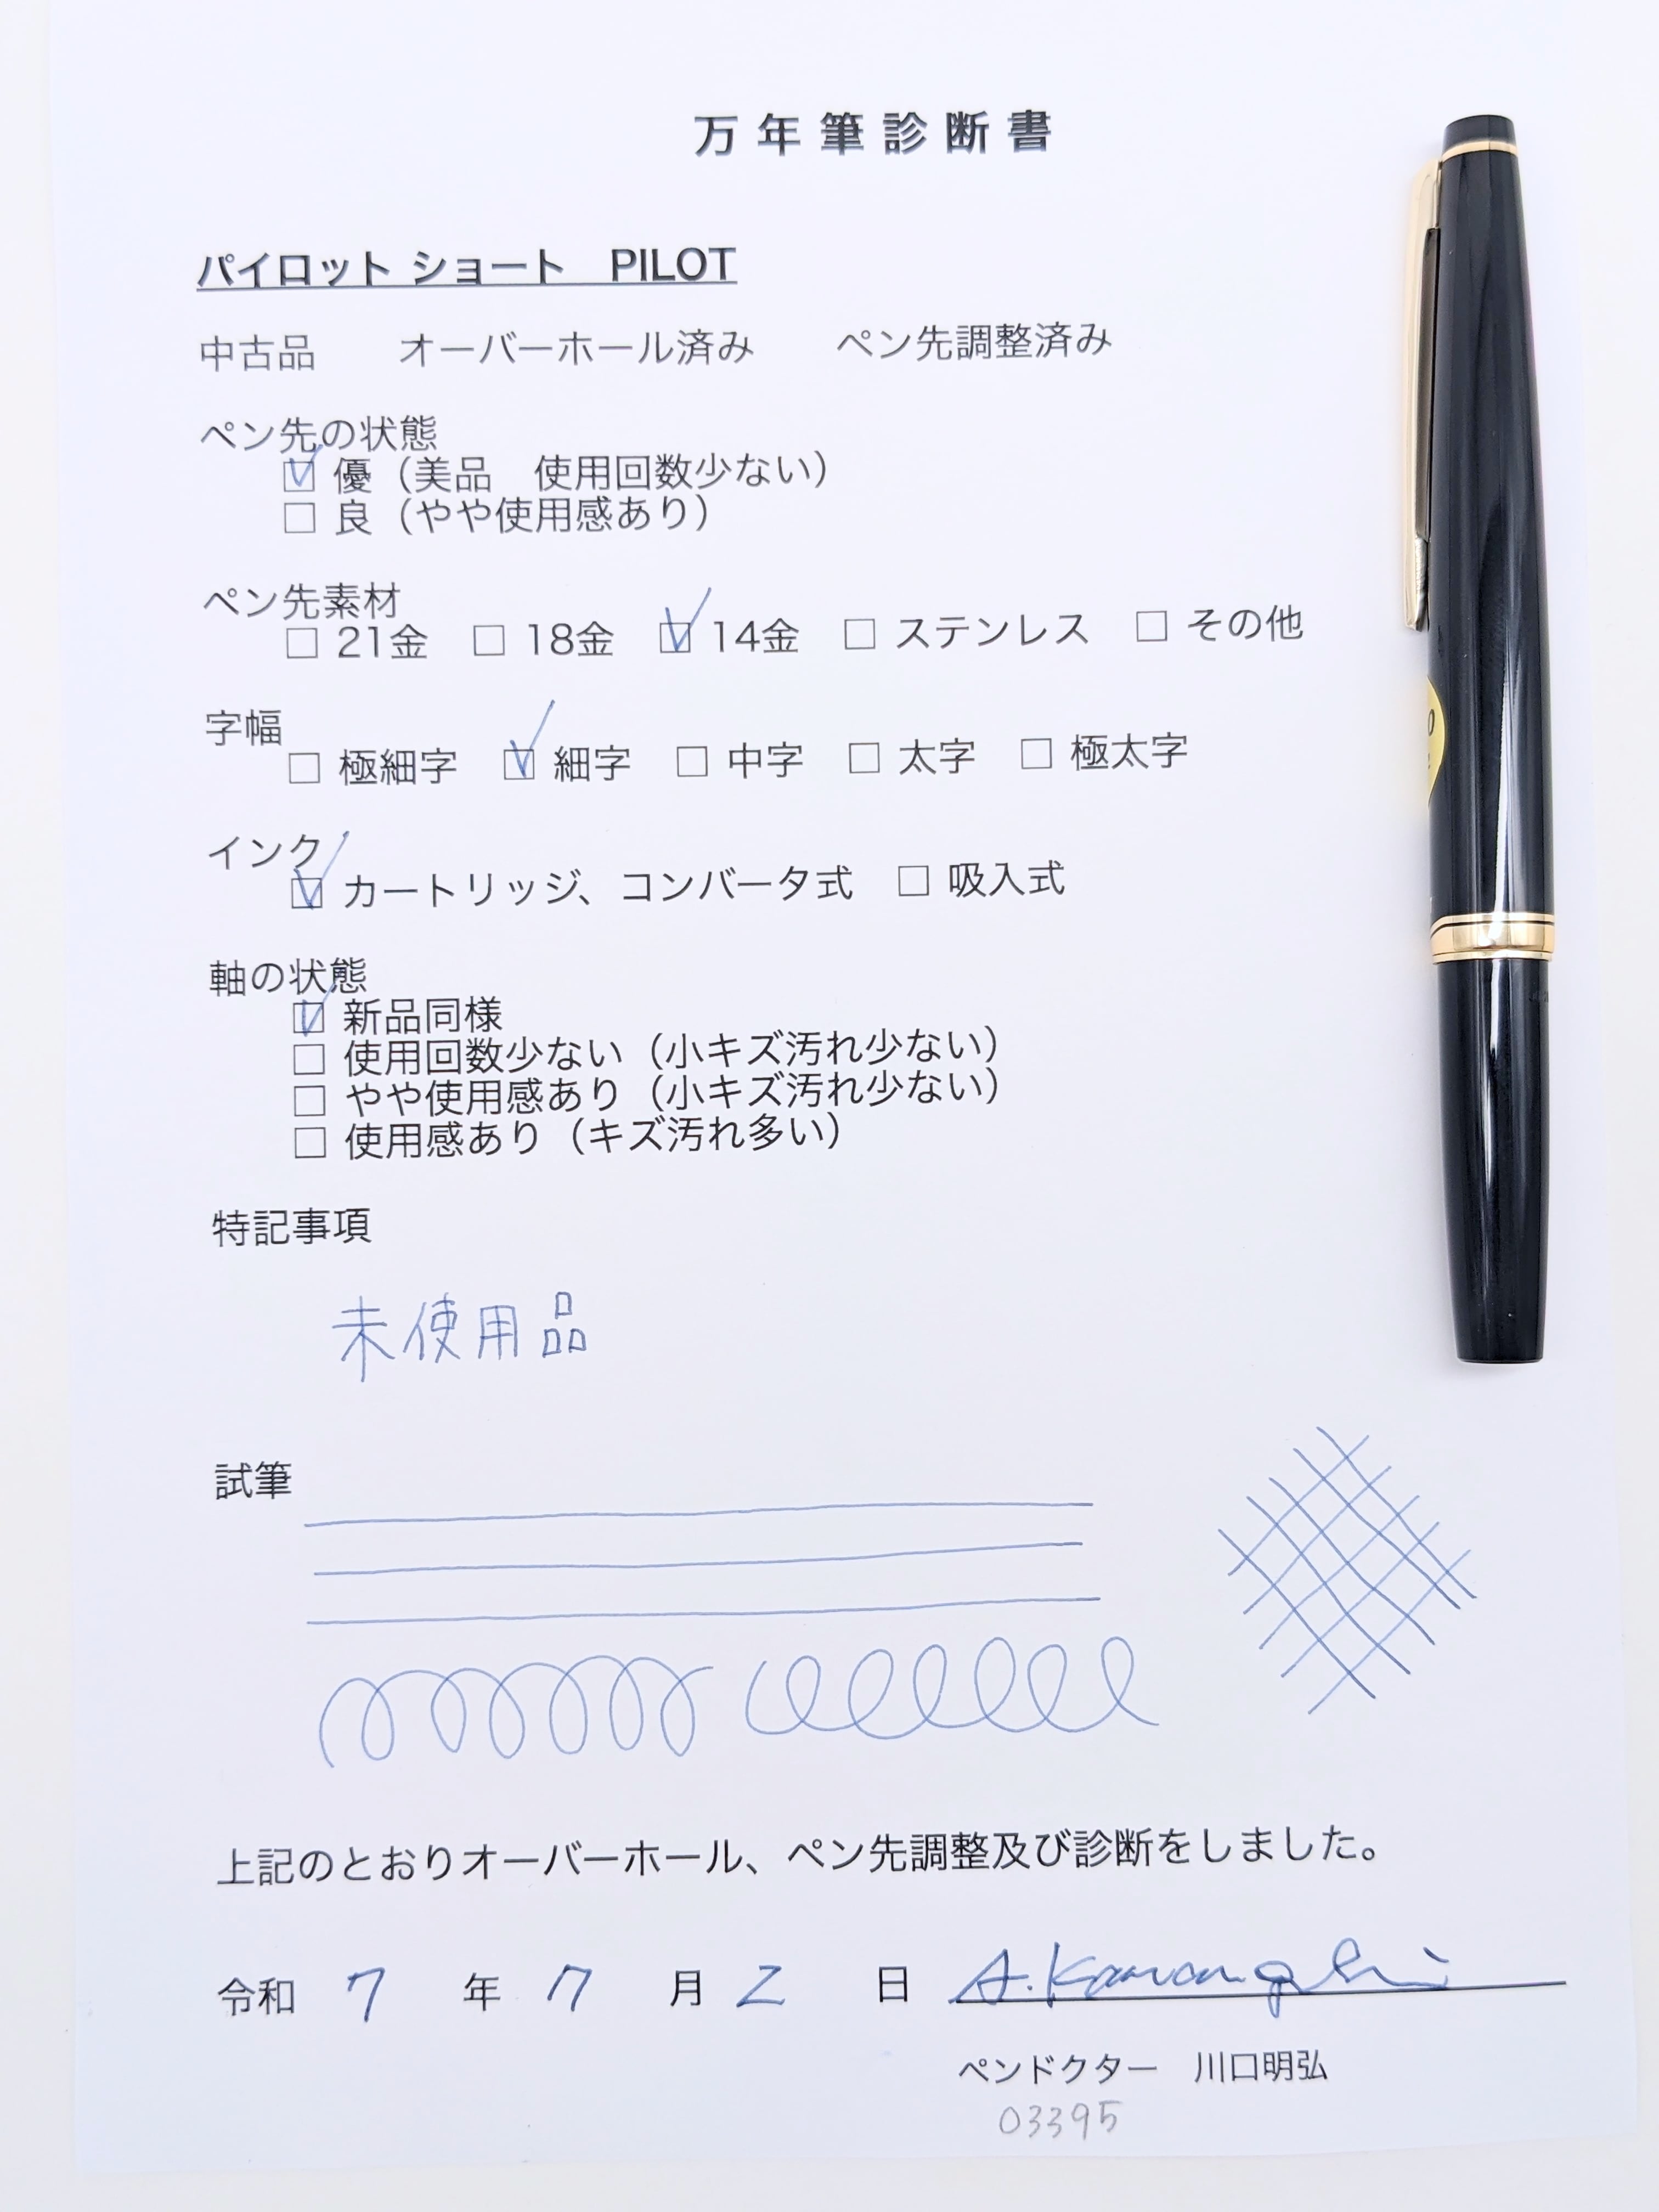 万年筆診断書
パイロット ショート　PILOT
中古品　　オーバーホール済み　　ペン先調整済み
ペン先の状態
☑ 優（美品　使用回数少ない）
☐ 良（やや使用感あり）
ペン先素材
☐ 21金　☐ 18金　☑ 14金　☐ ステンレス　☐ その他
字幅
☐ 極細字　☑ 細字　☐ 中字　☐ 太字　☐ 極太字
インク
☑ カートリッジ、コンバータ式　☐ 吸入式
軸の状態
☑ 新品同様
☐ 使用回数少ない（小キズ汚れ少ない）
☐ やや使用感あり（小キズ汚れ少ない）
☐ 使用感あり（キズ汚れ多い）
特記事項
未使用品
試筆
上記のとおりオーバーホール、ペン先調整及び診断をしました。
令和 7 年 7 月 2 日 A.Kawaguchi
ペンドクター　川口明弘
03395